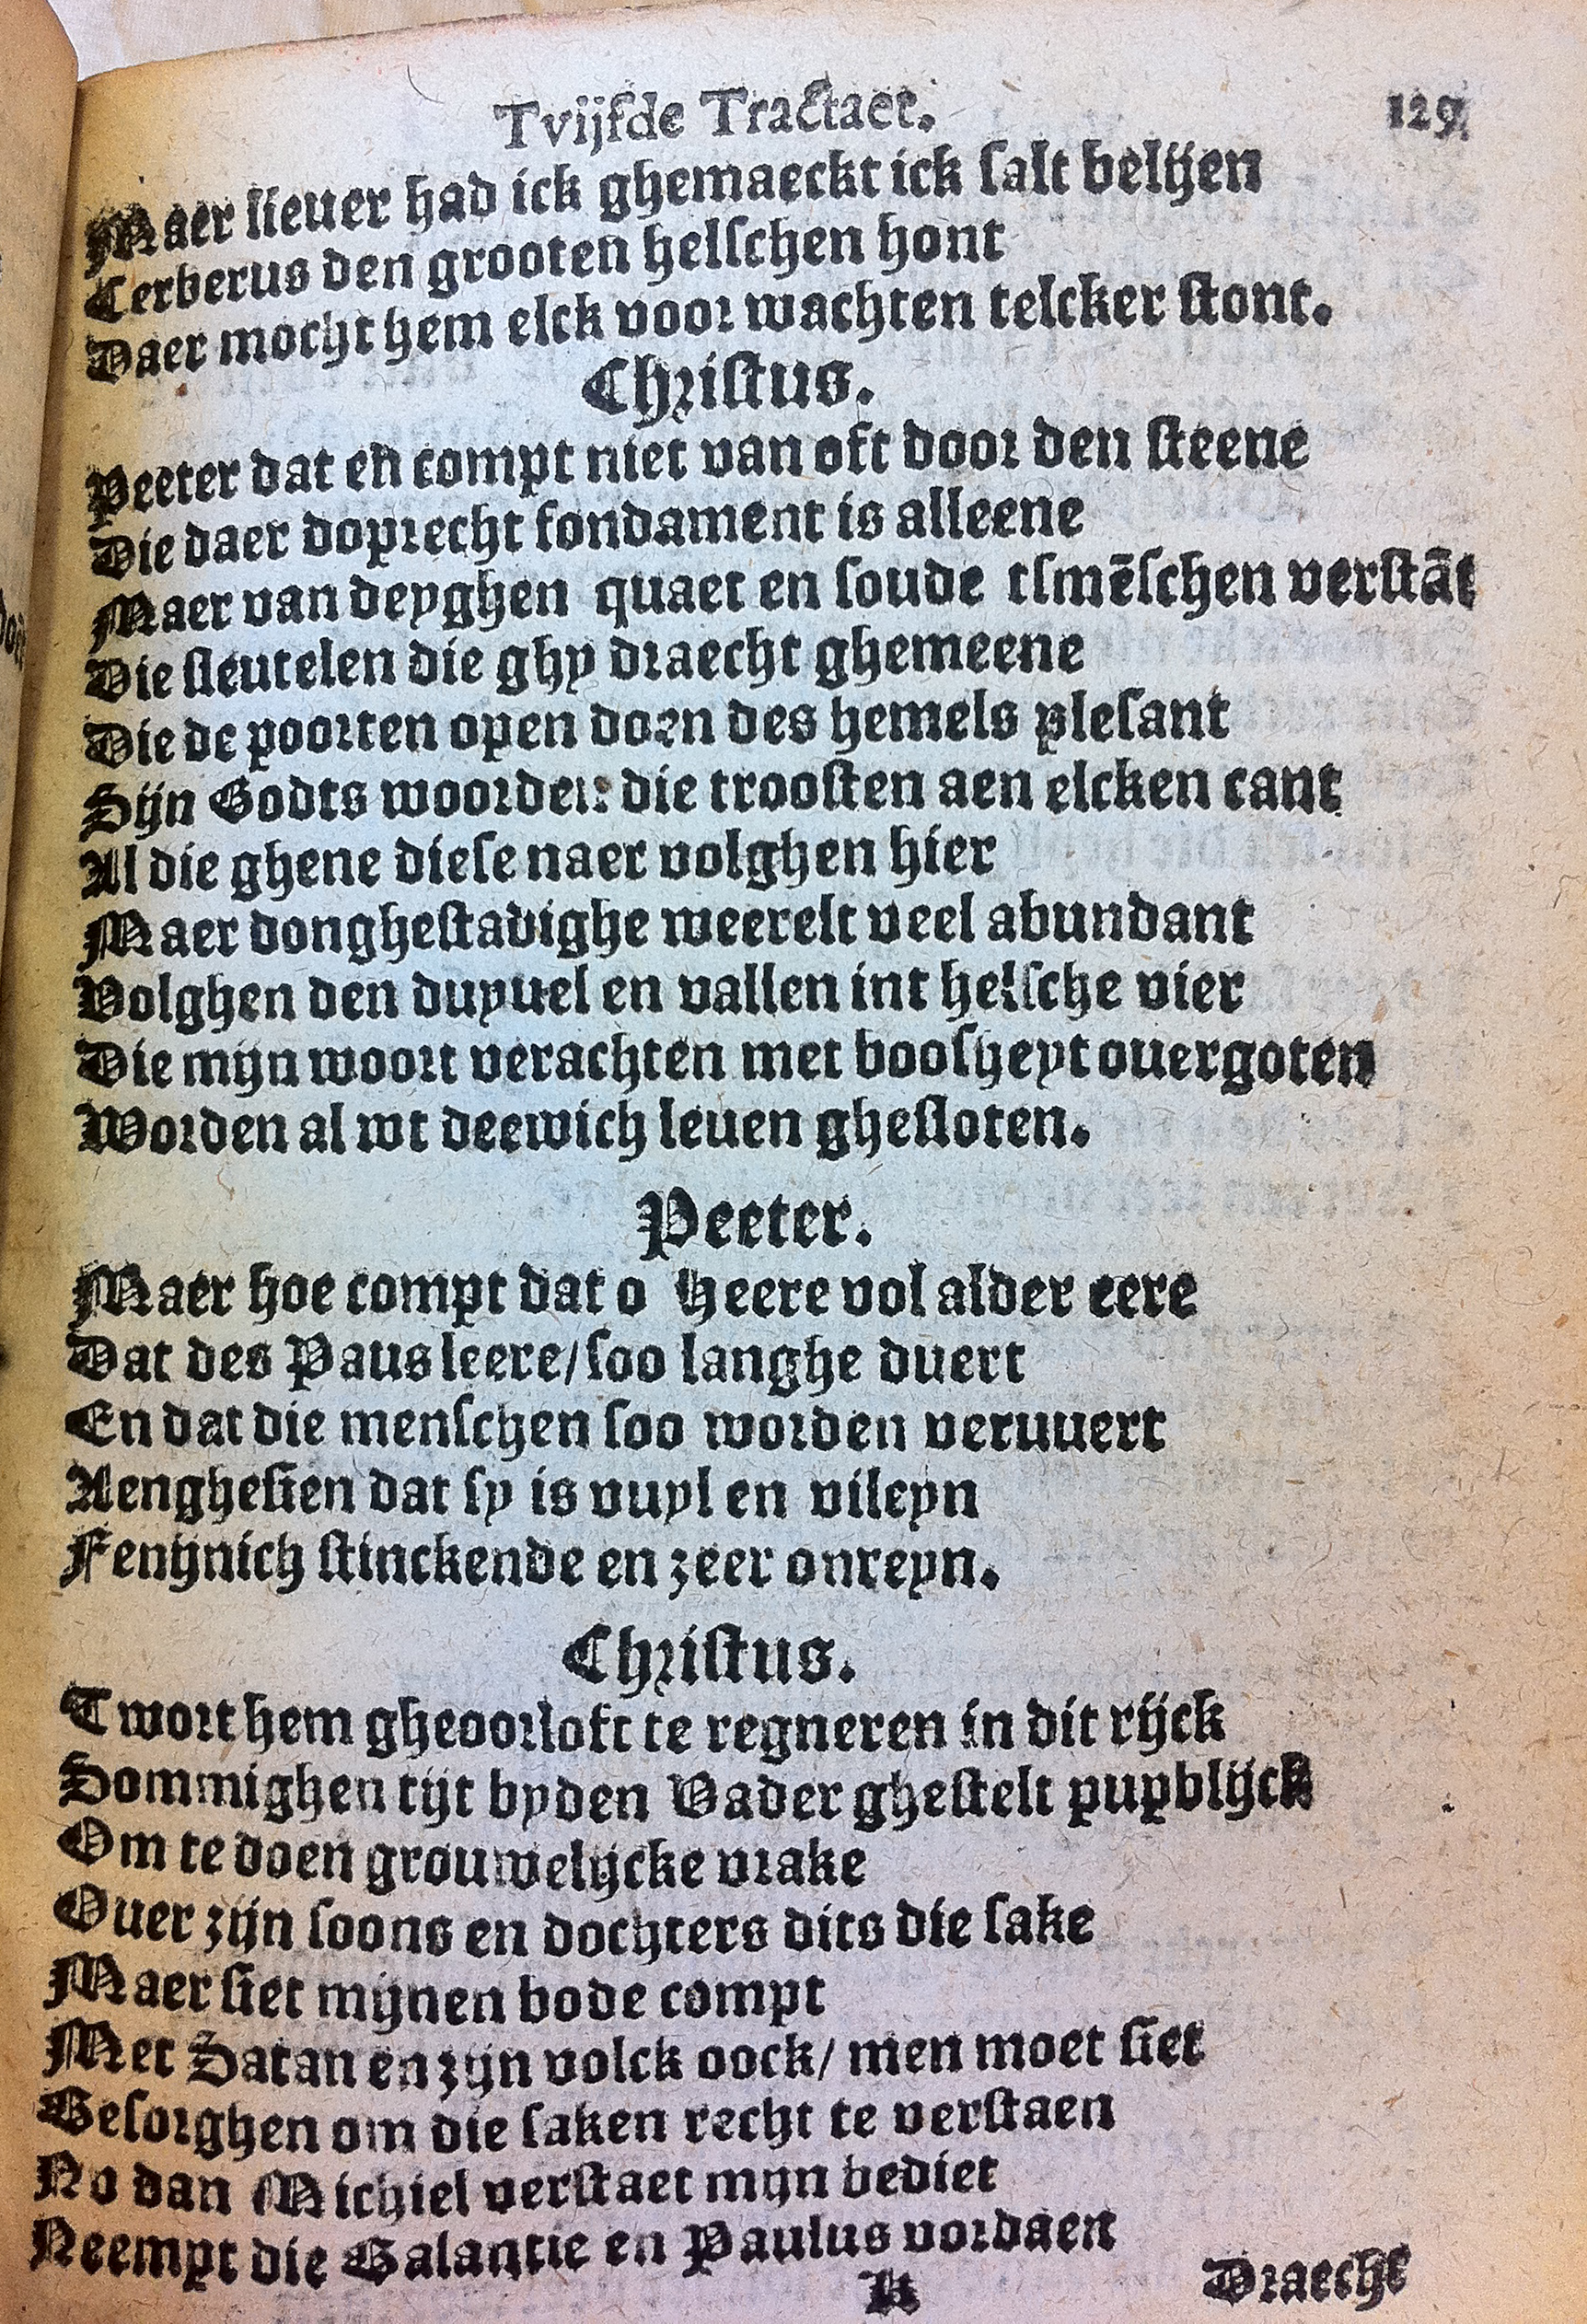 Tvijfde Tractaet. 129.
Maer lieuer had ick ghemaeckt ick salt belijen
Cerberus den grooten helschen hont
Daer mocht hem elck voor wachten telcker stont.
Christus.
Peeter dat en compt niet van oft door den steene
Die daer doprecht fondament is alleene
Maer van deyghen quaet en soude tsmēschen verstāt
Die sleutelen die ghy draecht ghemeene
Die de poorten open doen des hemels plesant
Sijn Godts woorden die troosten aen elcken cant
Al die ghene diese naer volghen hier
Maer donghestadighe weerelt veel abundant
Volghen den duyuel en vallen int helsche vier
Die mijn woort verachten met boosheyt ouergoten
Worden al wt deewich leuen ghesloten.
Peeter.
Maer hoe compt dat o Heere vol alder eere
Dat des Paus leere/soo langhe duert
En dat die menschen soo worden veruuert
Aenghesien dat sy is vuyl en vileyn
Fenijnich stinckende en zeer onreyn.
Christus.
Twort hem gheoorloft te regneren in dit rijck
Sommighen tijt byden Vader ghestelt pupblijck
Om te doen grouwelijcke vrake
Ouer zijn soons en dochters dits die sake
Maer siet mijnen bode compt
Met Satan en zijn volck oock/ men moet siet
Besorghen om die saken recht te verstaen
No dan Michiel verstaet mijn bediet
Neempt die Balantie en Paulus vordaen
K Draecht